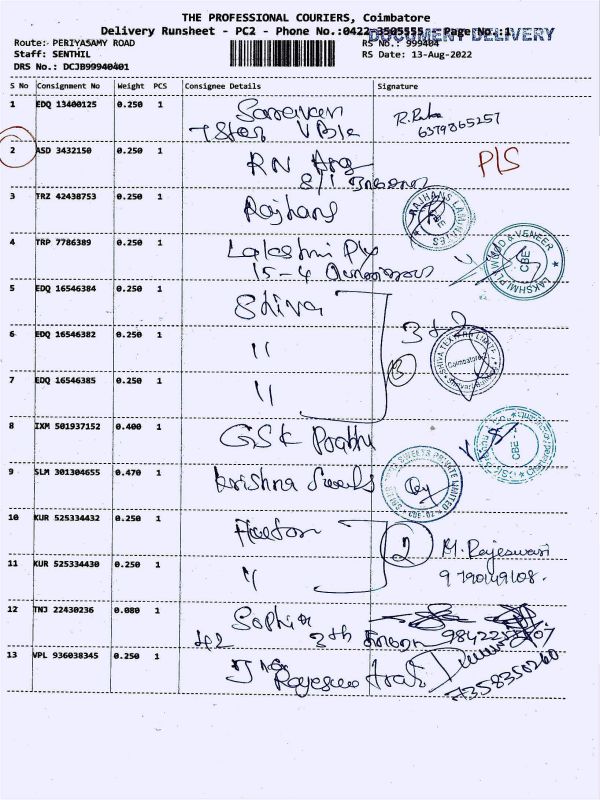 THE PROFESSIONAL COURIERS, Coimbatore
Delivery Runsheet - PC2 - Phone No.:0422-3505555 Page No.:1
DOCUMENT DELIVERY
Route: PERIYASAMY ROAD RS No.: 999404
Staff: SENTHIL RS Date: 13-Aug-2022
DRS No.: DCJB99940401
S No Consignment No Weight PCS Consignee Details Signature
1 EDQ 13400125 0.250 1 Saravan
7 Star R. 6379865257
2 ASD 3432150 0.250 1 RN P/S
8/1
3 TRZ 42438753 0.250 1 Rajhans RAJHANS LAMINATES
4 TRP 7786389 0.250 1 Lakshmi Ply LAKSHMI PLYWOOD & VENEER CBE
15-4
5 EDQ 16546384 0.250 1 Shiva
6 EDQ 16546382 0.250 1 " 3 SHIVA TEXYARN LIMITED Coimbatore
7 EDQ 16546385 0.250 1 " 3
8 IXM 501937152 0.400 1 GSK Prabhu CBE
9 SLM 301304655 0.470 1 Krishna Sweets SWEETS PRIVATE LIMITED
10 KUR 525334432 0.250 1 2 M. Rajeswari
11 KUR 525334430 0.250 1 " 9790149108.
12 TNJ 22430236 0.080 1 Sophia
3th
13 VPL 936038345 0.250 1 7358350260